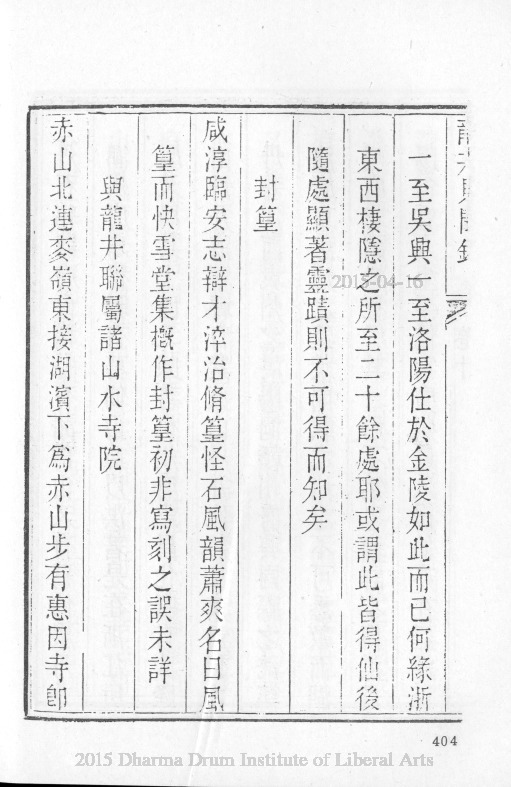 龍井見聞錄
一至吳興一至洛陽仕於金陵如此而已何緣浙
東西棲隱之所至二十餘處耶或謂此皆得仙後
隨處顯著靈蹟則不可得而知矣
封篁
咸淳臨安志辯才淬治脩篁怪石風韻蕭爽名曰風
篁而快雪堂集槪作封篁初非寫刻之誤未詳
與龍井聯屬諸山水寺院
赤山北連麥嶺東接湖濱下爲赤山步有惠因寺卽
2013-04-16
404
2015 Dharma Drum Institute of Liberal Arts